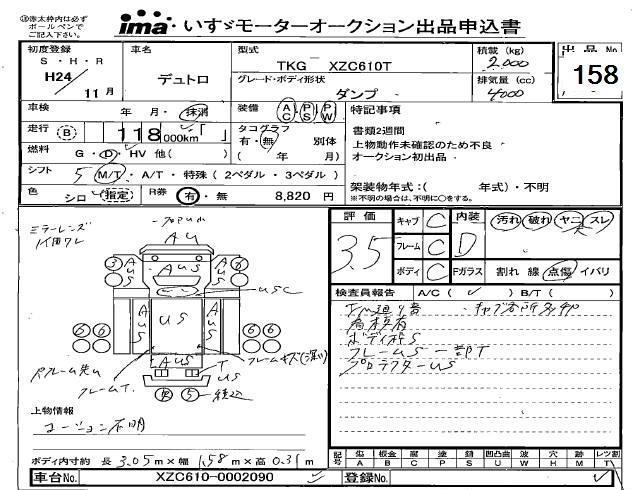 ㊟赤太枠内は必ず
ボールペンで
ご記入下さい。
ima いすゞモーターオークション出品申込書
初度登録
S・H・R
H24
11月
車名
デュトロ
型式
TKG XZC610T
グレード・ボディ形状
ダンプ
積載 (kg)
2.000
排気量 (cc)
4000
出品 No
158
車検
年 月・抹消
走行 B 118 000km「 」
燃料 G・D・HV 他( )
シフト 5 M/T・A/T・特殊(2ペダル・3ペダル)
色 シロ 指定 R券 有・無 8,820 円
装備 AC PS PW
タコグラフ
有・無 別体
( 年 月)
特記事項
書類2週間
上物動作未確認のため不良
オークション初出品
架装物年式:( 年式)・不明
※不明の場合は、不明に○をする。
ミラーレンズ
AU
AUS
US
USC
T
US
フレームT.
上物情報
コーション不明
ボディ内寸約 長 3.05m×幅 1.58m×高 0.31m
車台No. XZC610-0002090
評価
3.5
キャブ C
フレーム C
ボディ C
内装 D
汚れ 破れ ヤニ スレ
Fガラス 割れ 線 点傷 イバリ
検査員報告 A/C( ✓ ) B/T( )
ボディ枠S
フレームUS 一部T
プロテクターUS
記号 傷A 板金B 腐C 塗P 錆S 凹凸曲U 波W 穴H 飛M レッツ割T
登録No.